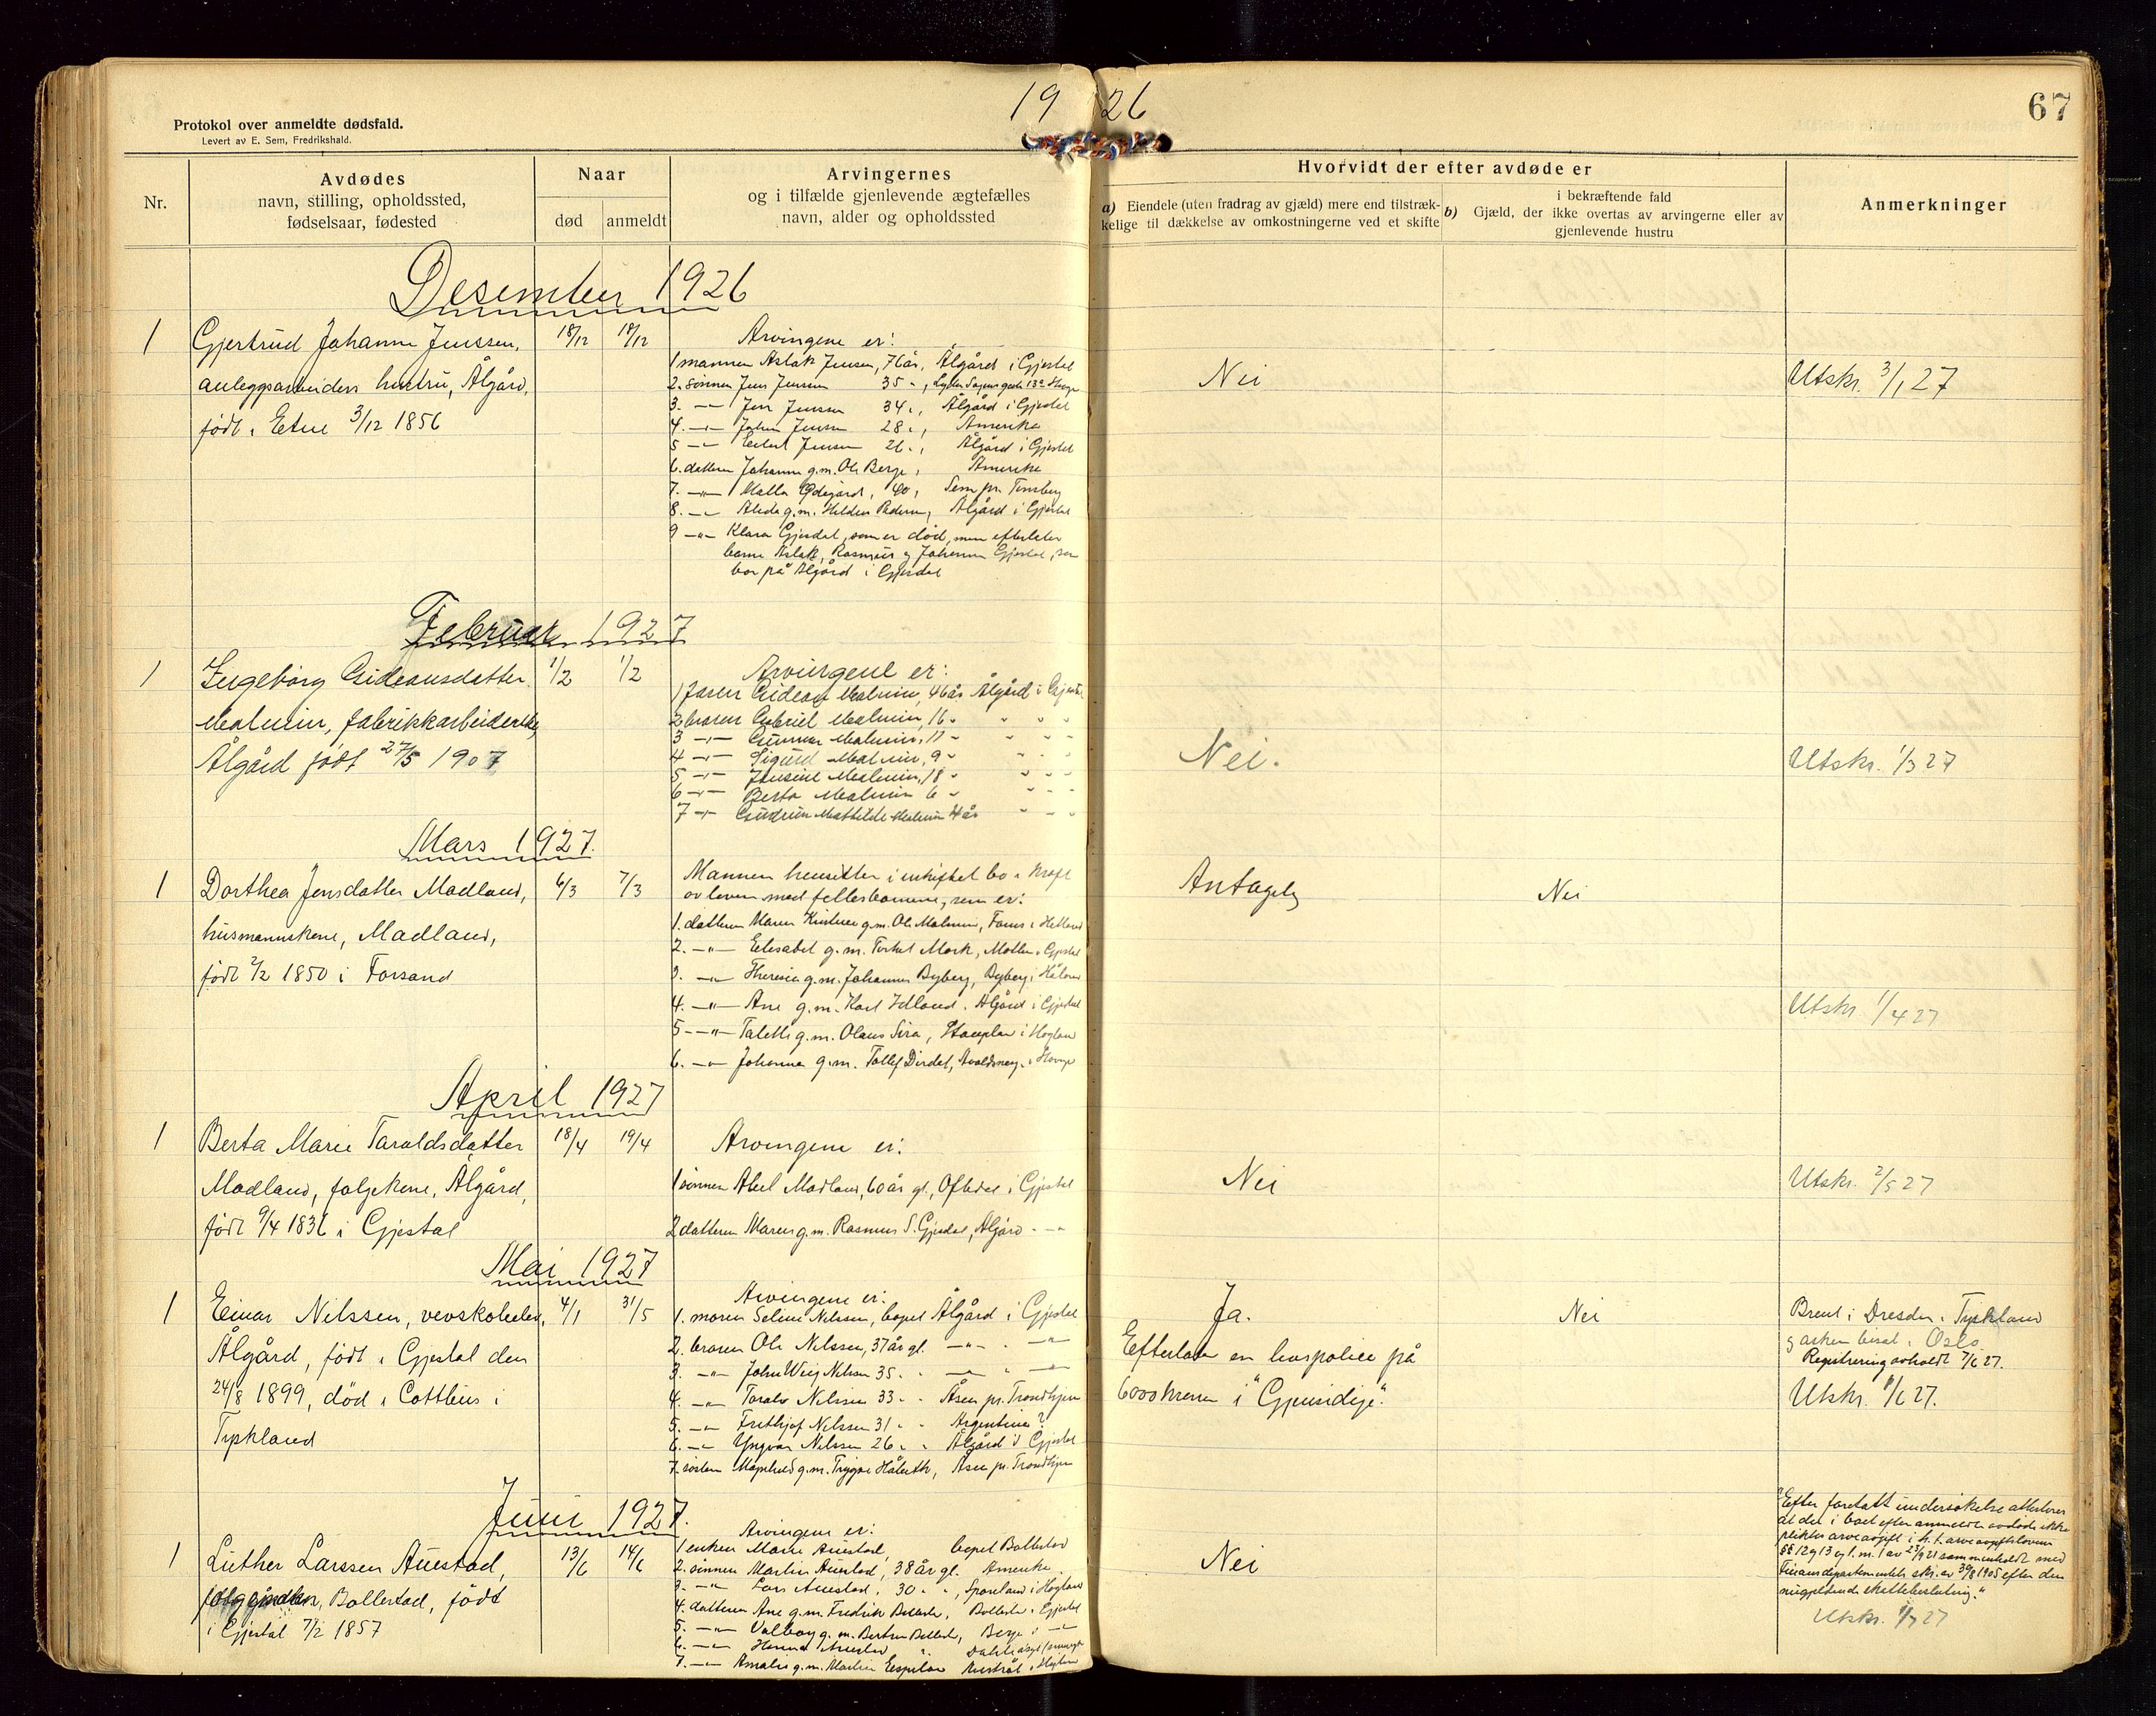 19 26
67
Protokol over anmeldte dødsfald.
Levert av E. Sem, Fredrikshald.
Nr.
Avdødes
navn, stilling, opholdssted,
fødselsaar, fødested
Naar
død
anmeldt
Arvingernes
og i tilfælde gjenlevende ægtefælles
navn, alder og opholdssted
Hvorvidt der efter avdøde er
a) Eiendele (uten fradrag av gjæld) mere end tilstræk-
kelige til dækkelse av omkostningerne ved et skifte
i bekræftende fald
b) Gjæld, der ikke overtas av arvingerne eller av
gjenlevende hustru
Anmerkninger
Desember 1926
1 Gjertrud Johanne Jenssen, 18/12 18/12
anleggsarbeiders hustru, Ålgård,
født i Etne 3/12 1856
Arvingene er:
1 mannen Aslak Jensen, 76 år, Ålgård i Gjestal
2. sönnen Jens Jenssen 35 "
3. -"- Jon Jenssen 34 ", Ålgård i Gjestal
4. -"- Johan Jensen 28 ", Amerika
5 -"- Jensen 26 ", Ålgård i Gjestal
6. datteren Johanne g.m. Ole Berge, Amerika
7. -"- Malla Ødegård, 40, Sem pr. Tönsberg
8. -"- g.m. Ålgård i Gjestal
9 -"- Klara Gjesdal, som er död, men efterlater
barna Aslak, Rasmus og Johanna Gjestal, som
bor på Ålgård i Gjesdal
Nei
Utskr. 3/1 27
Februar 1927
1 Ingeborg Gideonsdatter 1/2 1/2
Malmin, fabrikkarbeiderske
Ålgård født 27/5 1907
Arvingene er:
1 faren Gideon Malmin, 46 år Ålgård i Gjestal
2 broren Gabriel Malmin, 16 " " " "
3 -"- Gunnar Malmin, 11 " " " "
4 -"- Sigurd Malmin, 9 " " " "
5 -"- Malmin, 18 " " " "
6 -"- Berta Malmin 6 " " " "
7 -"- Gudrun Mathilde Malmin 4 år " " "
Nei.
Utskr. 1/3 27
Mars 1927.
1 Dorthea Jensdatter Madland, 6/3 7/3
husmannskone, Madland,
født 2/2 1850 i Forsand
Mannen hensitter i uskiftet bo i kraft
av loven med fellesbarnene, som er:
1. datteren Maren g.m. Ole Malmin, i Hetland
2. -"- Elisabet g.m. Torkel Mork, i Gjestal
3. -"- Theresia g.m. Johannes Byberg, Byberg i Håland
4. -"- Ane g.m. Karl Idland, Ålgård i Gjestal
5 -"- g.m. Olaus Sira, i Høyland
6. -"- Johanna g.m. Tollef Dirdal,
Antagelig
Nei
Utskr 1/4 27
April 1927
1 Berta Marie Taraldsdatter 18/4 19/4
Madland, følgekone, Ålgård,
født 9/4 1836 i Gjestal
Arvingene er:
1 sönnen Abel Madland, 60 år gl., Oftedal i Gjestal
2 datteren Maren g.m. Rasmus S. Gjesdal, Ålgård -"-
Nei
Utskr. 2/5 27
Mai 1927
1 Einar Nilssen, vevskoleelev, 4/1 31/5
Ålgård, født i Gjestal den
24/8 1899, död i Cottbus i
Tyskland
Arvingene er:
1. moren Seline Nilssen, bopel Ålgård i Gjestal
2. broren Ole Nilssen, 37 år gl. -"- " -"-
3. -"- John Nilsen 35 " " -"- " -"-
4. -"- Toralv Nilssen 33 " " Åsen pr. Trondhjem
5. -"- Frithjof Nilssen 31 " " Argentina?
6. -"- Yngvar Nilssen 26 " " Ålgård i Gjestal
7. söster Magnhild g.m. Trygve Åsen pr. Trondhjem
Ja.
Efterlater en livspolice på
6000 kroner i "Gjensidige".
Nei
Brent i Dresden i Tyskland
og asken bisat i Oslo.
Registrering avholdt 7/6 27.
Utskr. 8/6 27.
Juni 1927.
1 Luther Larssen Auestad, 13/6 14/6
Bollestad, født
i Gjestal 7/2 1857
Arvingene er:
1 enken Marie Auestad, bopel Bollestad
2. sönnen Martin Auestad, 38 år gl. Amerika
3. -"- Lars Auestad, 30 " ", i Høyland
4. datteren Ane g.m. Fredrik Bollestad, Bollestad i Gjestal
5. -"- Valborg g.m. Bollestad, Berge i -"-
6. -"- Auestad
7. -"- Amalie g.m. Martin Espeland i Høyland
Nei
"Efter foretatt undersøkelse attesteres
at det i boet efter anmeldte avdøde ikke
pliktes arveavgift i h.t. arveavgiftsloven
§§ 12 og 13 sammenholdt med
Finansdepartementets skr. av 30/8 1905 efter den
nugjeldende skattebeslutning."
Utskr. 1/7 27